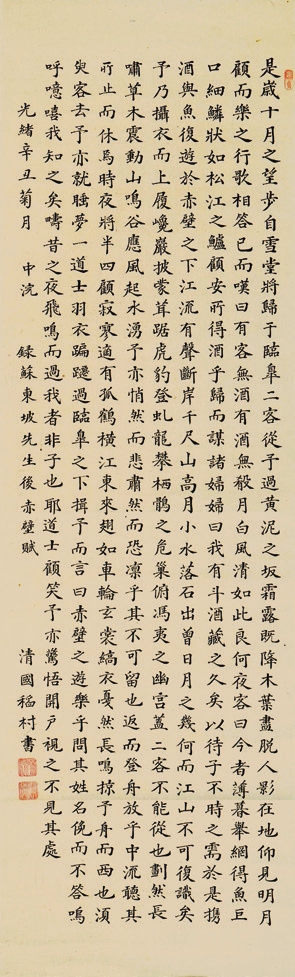 是歲十月之望步自雪堂將歸于臨皋二客從予過黃泥之坂霜露既降木葉盡脫人影在地仰見明月
顧而樂之行歌相答已而嘆曰有客無酒有酒無殽月白風清如此良何夜客曰今者薄暮舉網得魚巨
口細鱗狀如松江之鱸顧安所得酒乎歸而謀諸婦婦曰我有斗酒藏之久矣以待子不時之需於是携
酒與魚復遊於赤壁之下江流有聲斷岸千尺山高月小水落石出曾日月之幾何而江山不可復識矣
予乃攝衣而上履巉巖披蒙茸踞虎豹登虬龍攀栖鶻之危巢俯馮夷之幽宮蓋二客不能從也劃然長
嘯草木震動山鳴谷應風起水湧予亦悄然而悲肅然而恐凜乎其不可留也返而登舟放乎中流聽其
所止而休焉時夜將半四顧寂寥適有孤鶴橫江東來翅如車輪玄裳縞衣戛然長鳴掠予舟而西也須
臾客去予亦就睡夢一道士羽衣蹁躚過臨皋之下揖予而言曰赤壁之遊樂乎問其姓名俛而不答嗚
呼噫嘻我知之矣疇昔之夜飛鳴而過我者非子也耶道士顧笑予亦驚悟開戶視之不見其處
光緒辛丑菊月 中浣 錄蘇東坡先生後赤壁賦 清國稻村書